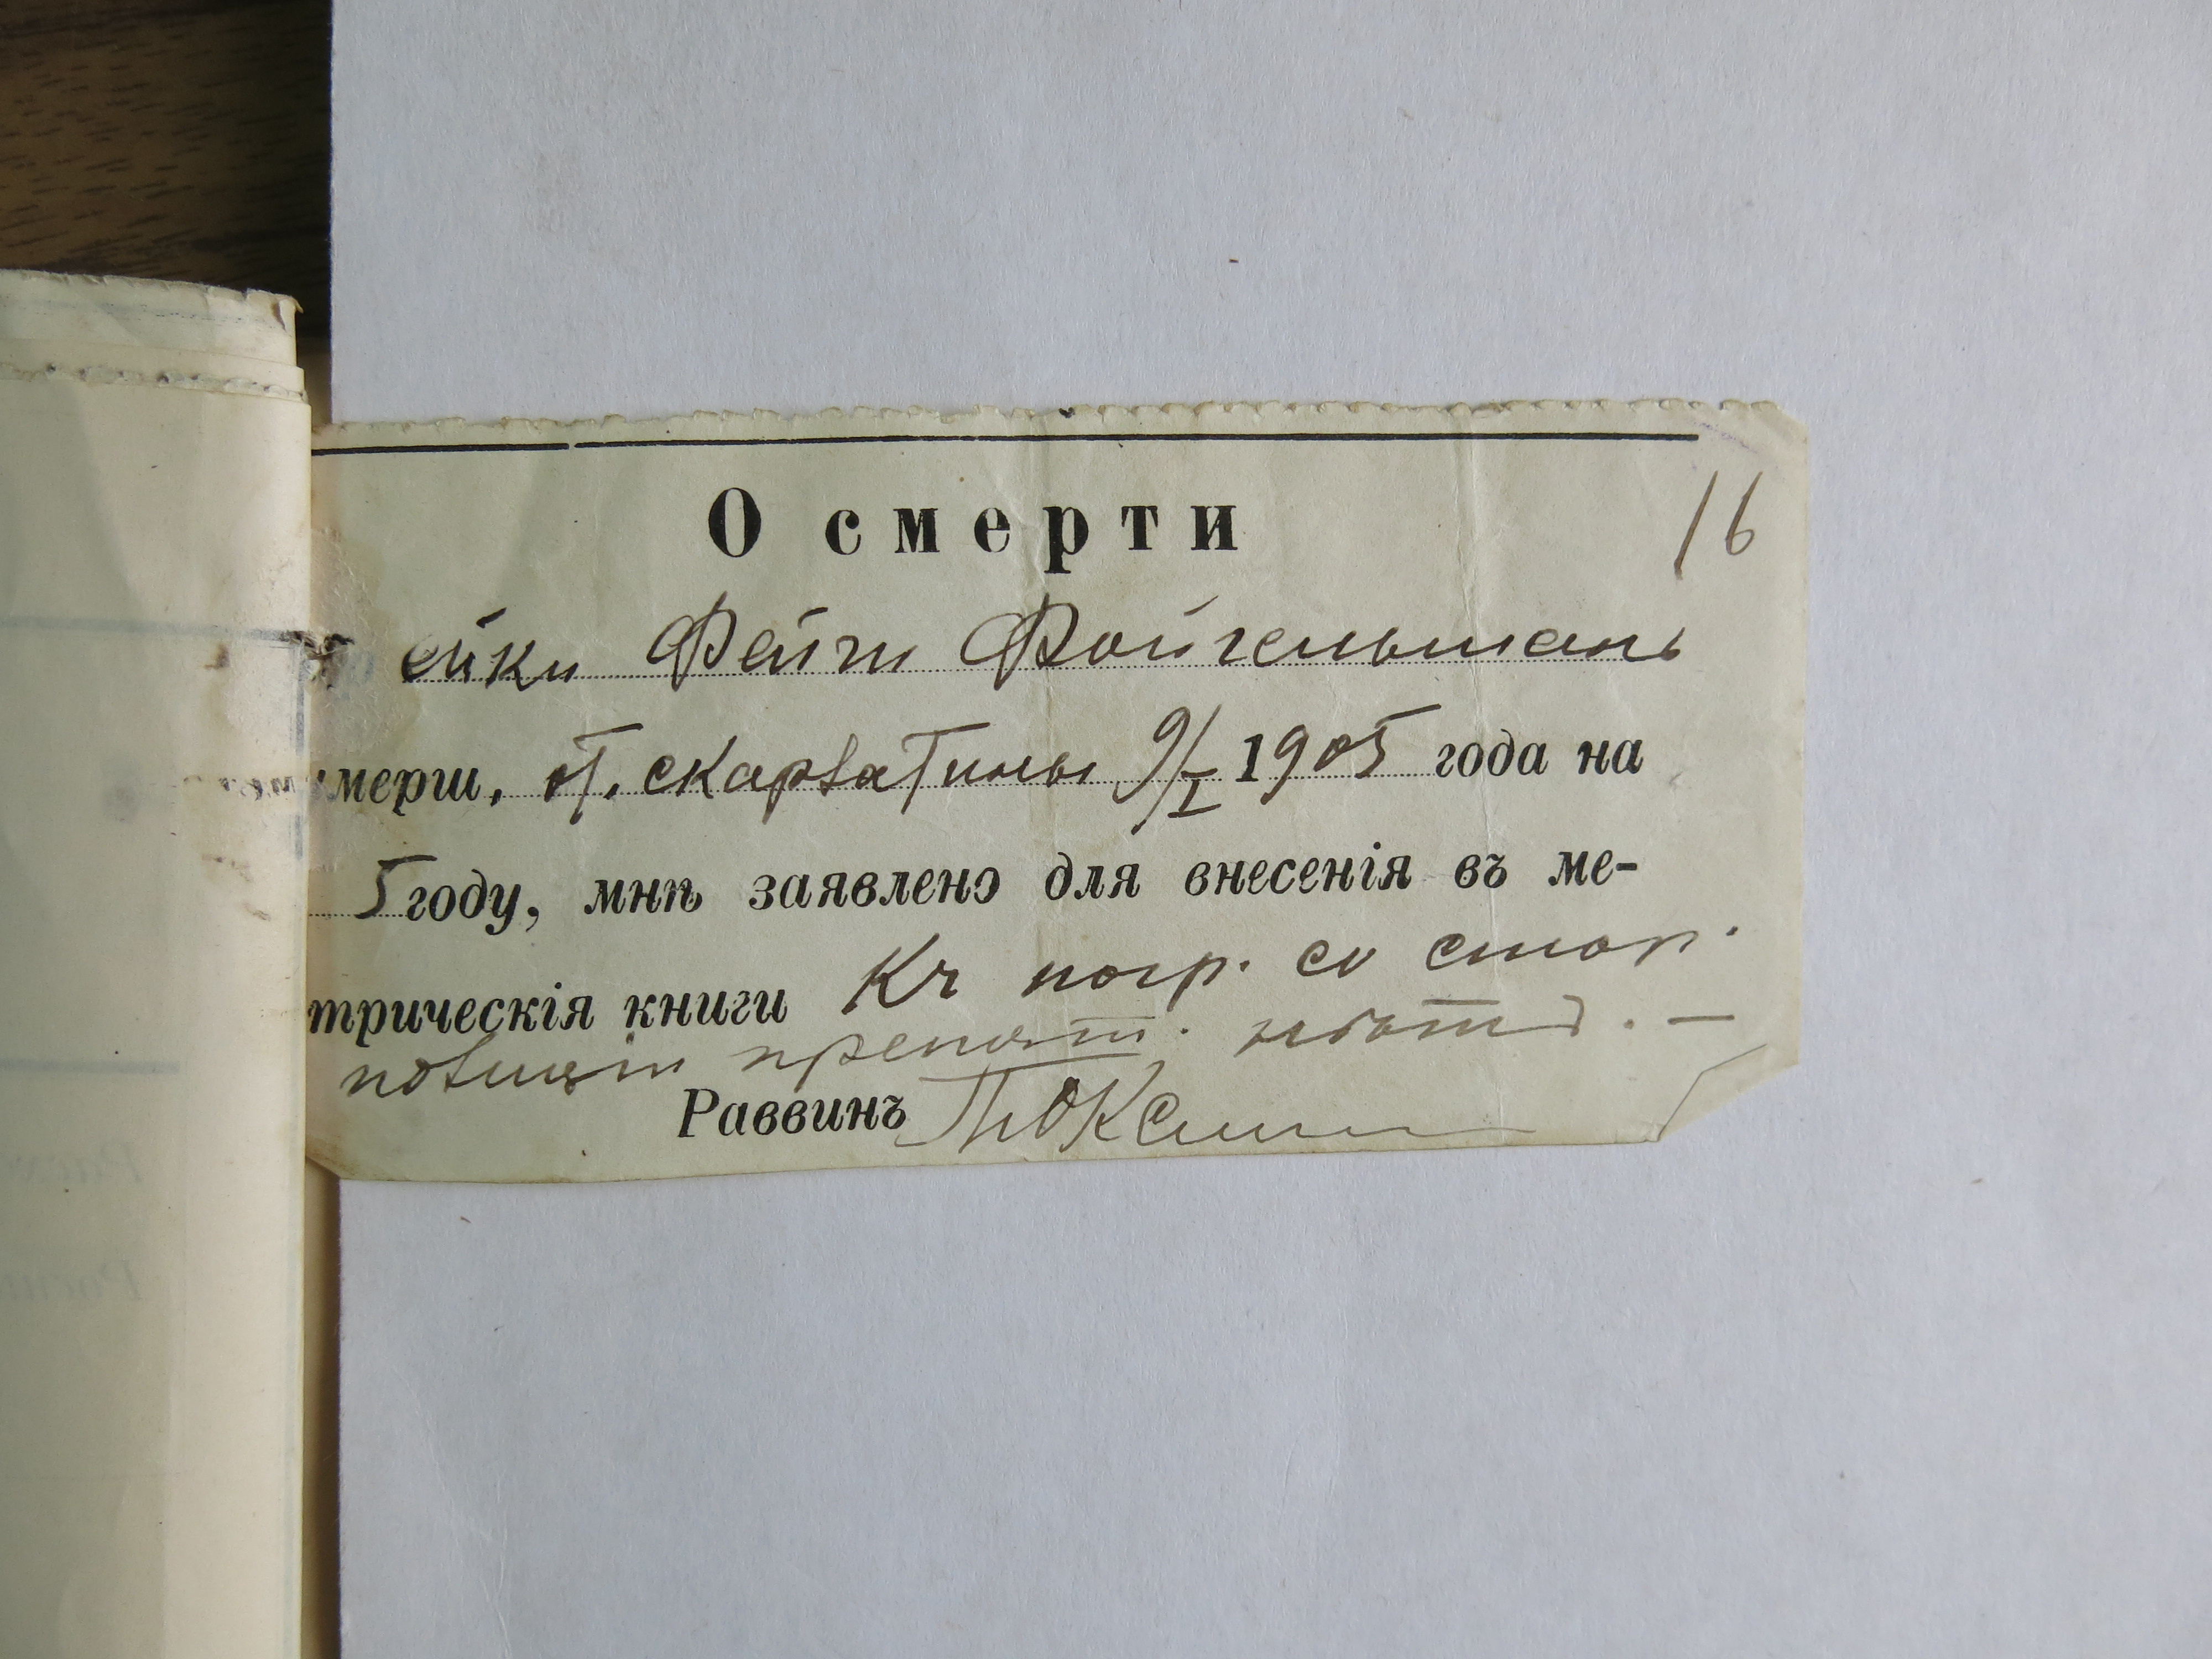 О смерти
16
ейки Фейги Фойгельманъ
умерш. от. скарлатины 9/I 1905 года на
5 году, мнѣ заявлено для внесенія въ ме-
трическія книги Къ погр. со стор.
полиціи препят. нѣтъ. —
Раввинъ